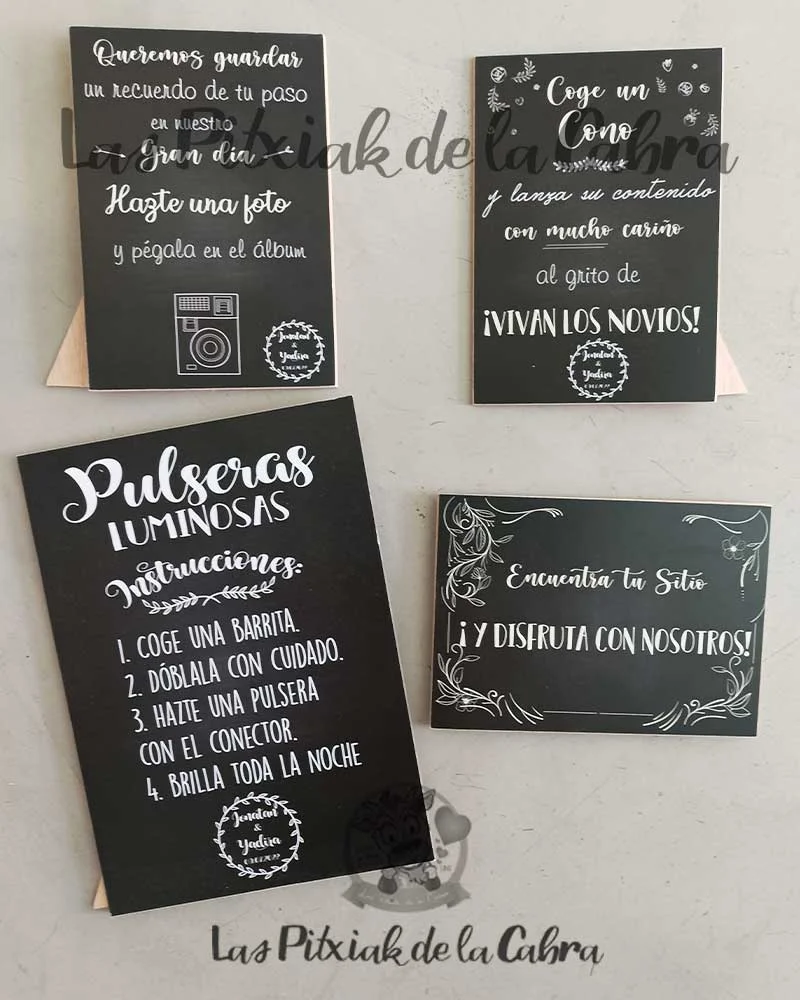 Queremos guardar
un recuerdo de tu paso
en nuestro
Gran día
Hazte una foto
y pégala en el álbum
Jonatan
&
Yadira
Coge un
Cono
y lanza su contenido
con mucho cariño
al grito de
¡VIVAN LOS NOVIOS!
Jonatan
&
Yadira
Las Pitxiak de la Cabra
Pulseras
LUMINOSAS
Instrucciones:
1. COGE UNA BARRITA.
2. DÓBLALA CON CUIDADO.
3. HAZTE UNA PULSERA
CON EL CONECTOR.
4. BRILLA TODA LA NOCHE
Jonatan
&
Yadira
Encuentra tu Sitio
¡Y DISFRUTA CON NOSOTROS!
Las Pitxiak de la Cabra